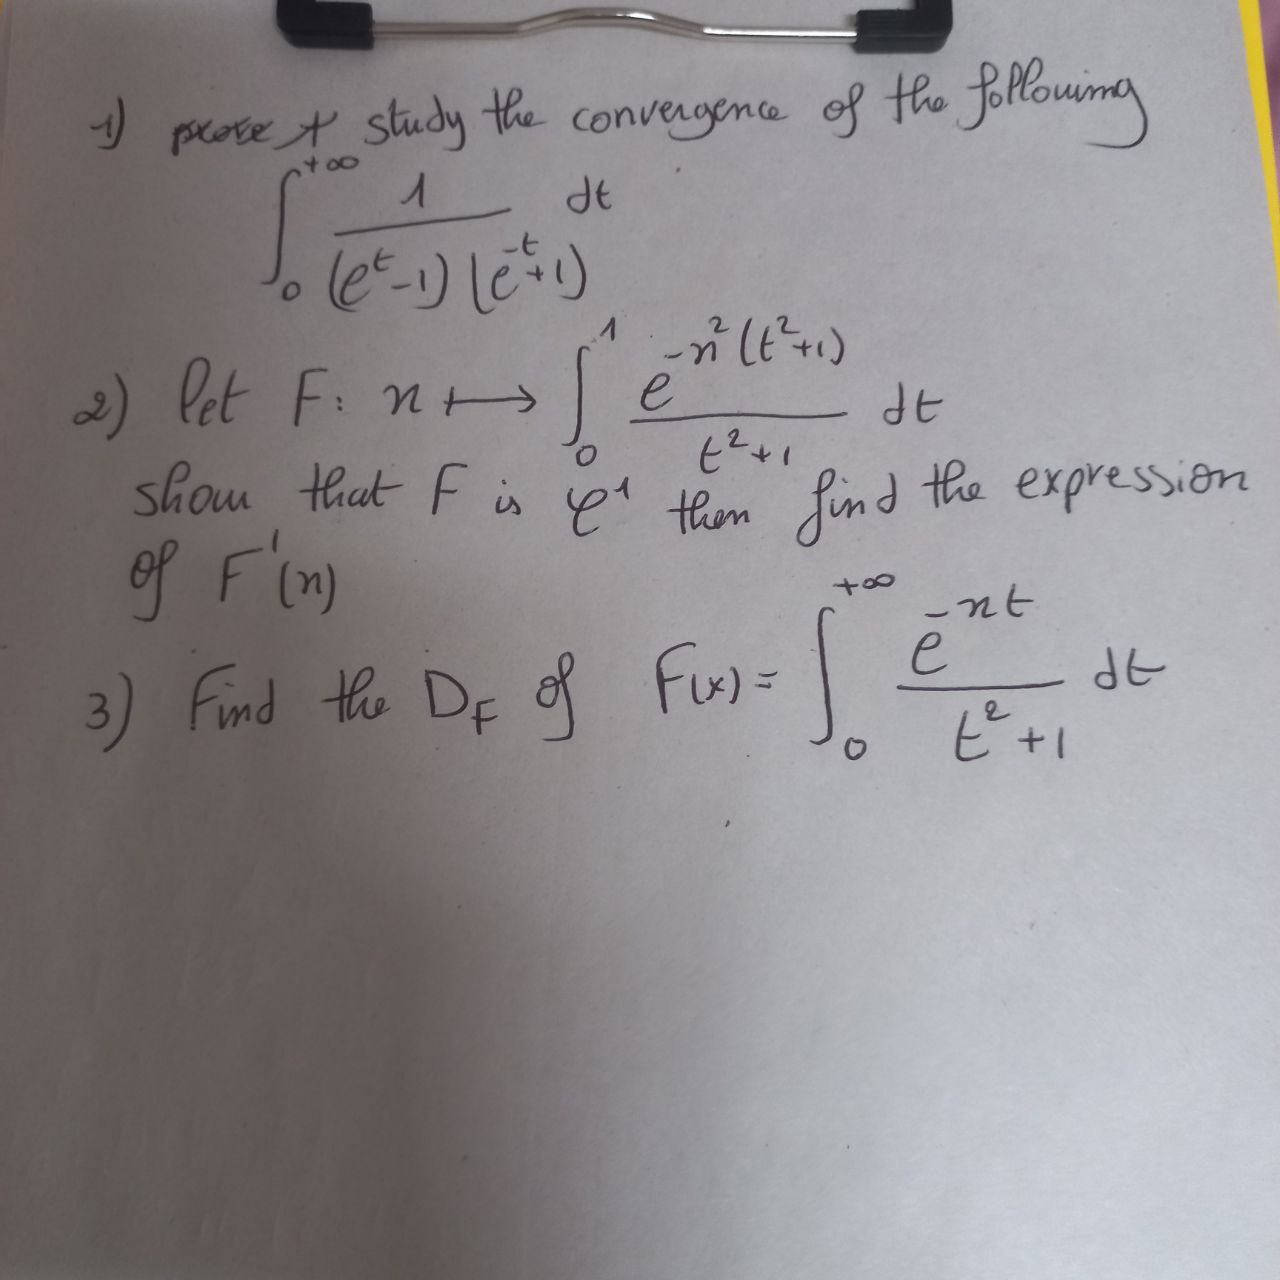 1) study the convergence of the following
∫₀^{+∞} 1/((e^t-1)(e^{-t}+1)) dt
2) let F: x ↦ ∫₀^1 e^{-x²(t²+1)}/(t²+1) dt
show that F is 𝒞¹ then find the expression
of F'(x)
3) Find the D_F of F(x) = ∫₀^{+∞} e^{-xt}/(t²+1) dt